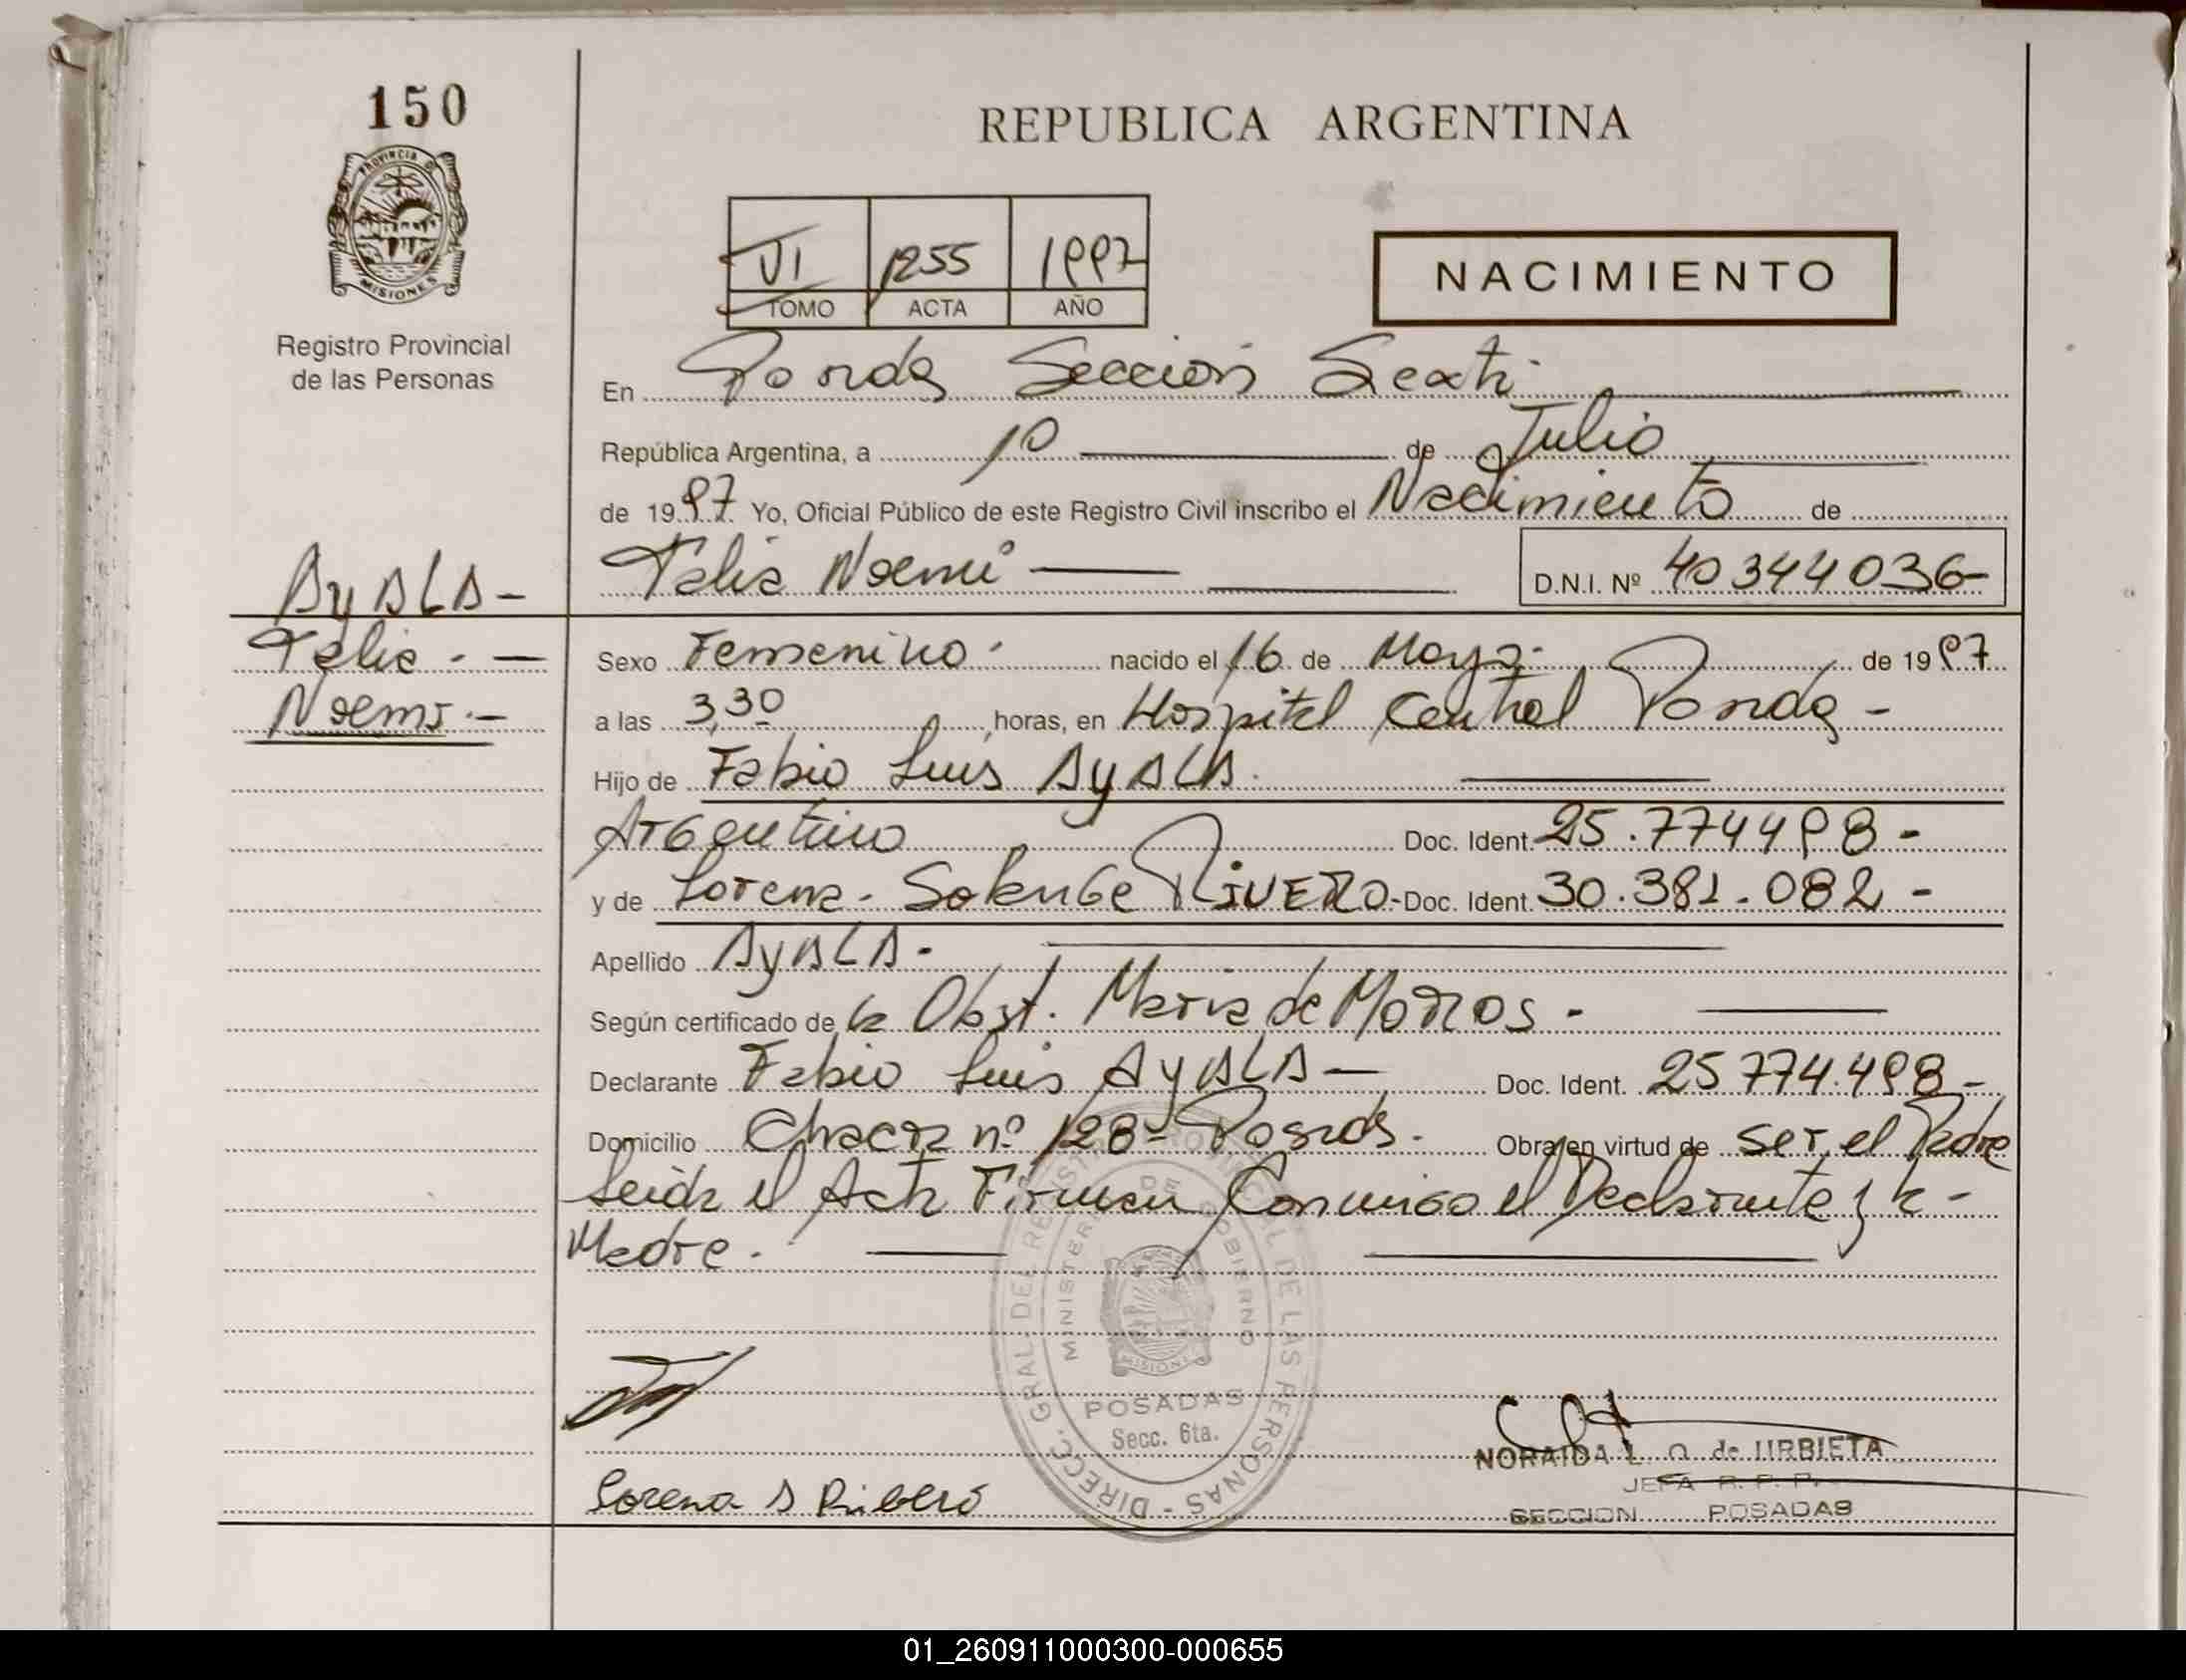 150
PROVINCIA DE
MISIONES
Registro Provincial
de las Personas
REPUBLICA ARGENTINA
VI 1255 1997
TOMO ACTA AÑO
NACIMIENTO
En Posadas Sección Sexta
República Argentina, a 10 de Julio
de 1997 Yo, Oficial Público de este Registro Civil inscribo el Nacimiento de
Talia Noemi D.N.I. Nº 40344036-
AyALA-
Talia. -
Noemi.-
Sexo Femenino. nacido el 16 de Mayo. de 1997
a las 3,30 horas, en Hospital Central Posadas -
Hijo de Fabio Luis AyALA.
Argentino Doc. Ident. 25.774498-
y de Lorena. Solange RiVERO- Doc. Ident. 30.381.082-
Apellido AyALA-
Según certificado de la Obst. Maria de
Declarante Fabio Luis AyALA- Doc. Ident. 25774.498-
Domicilio Chacra nº 128- Posadas. Obra en virtud de ser el Padre
Leida el Acta Firman Conmigo el Declarante y la -
Madre.
DIRECC. GRAL. DEL REGISTRO PROVINCIAL DE LAS PERSONAS -
MINISTERIO DE GOBIERNO
MISIONES
POSADAS
Secc. 6ta.
Lorena S Ribero
NORAIDA L. O. de URBIETA
JEFA R. P. P.
SECCION POSADAS
01_260911000300-000655